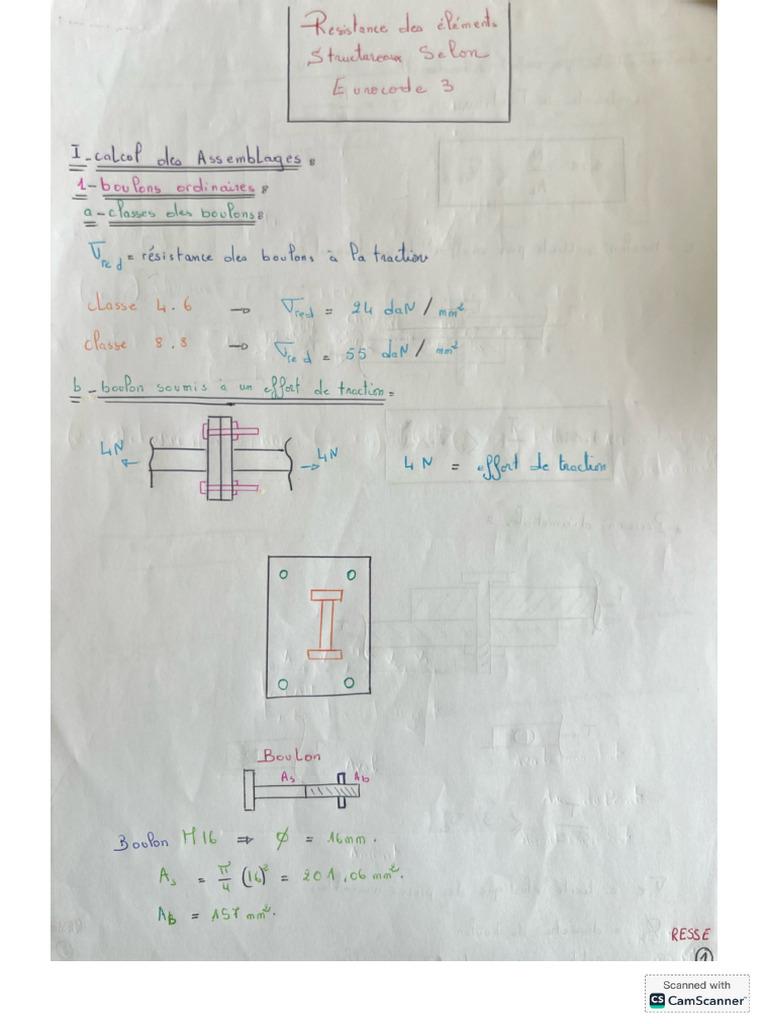 Resistance des éléments
Structureaux Selon
Eurocode 3
I - calcul des Assemblages :
1 - boulons ordinaires :
a - classes des boulons :
σred = résistance des boulons à la traction
classe 4.6 → σred = 24 daN/mm²
classe 8.8 → σred = 55 daN/mm²
b - boulon soumis à un effort de traction =
4N 4N 4N = effort de traction
Boulon
As Ab
Boulon M16 ⇒ ϕ = 16mm.
As = π/4 (16)² = 201,06 mm².
AB = 157 mm².
RESSE
1
Scanned with
CS CamScanner